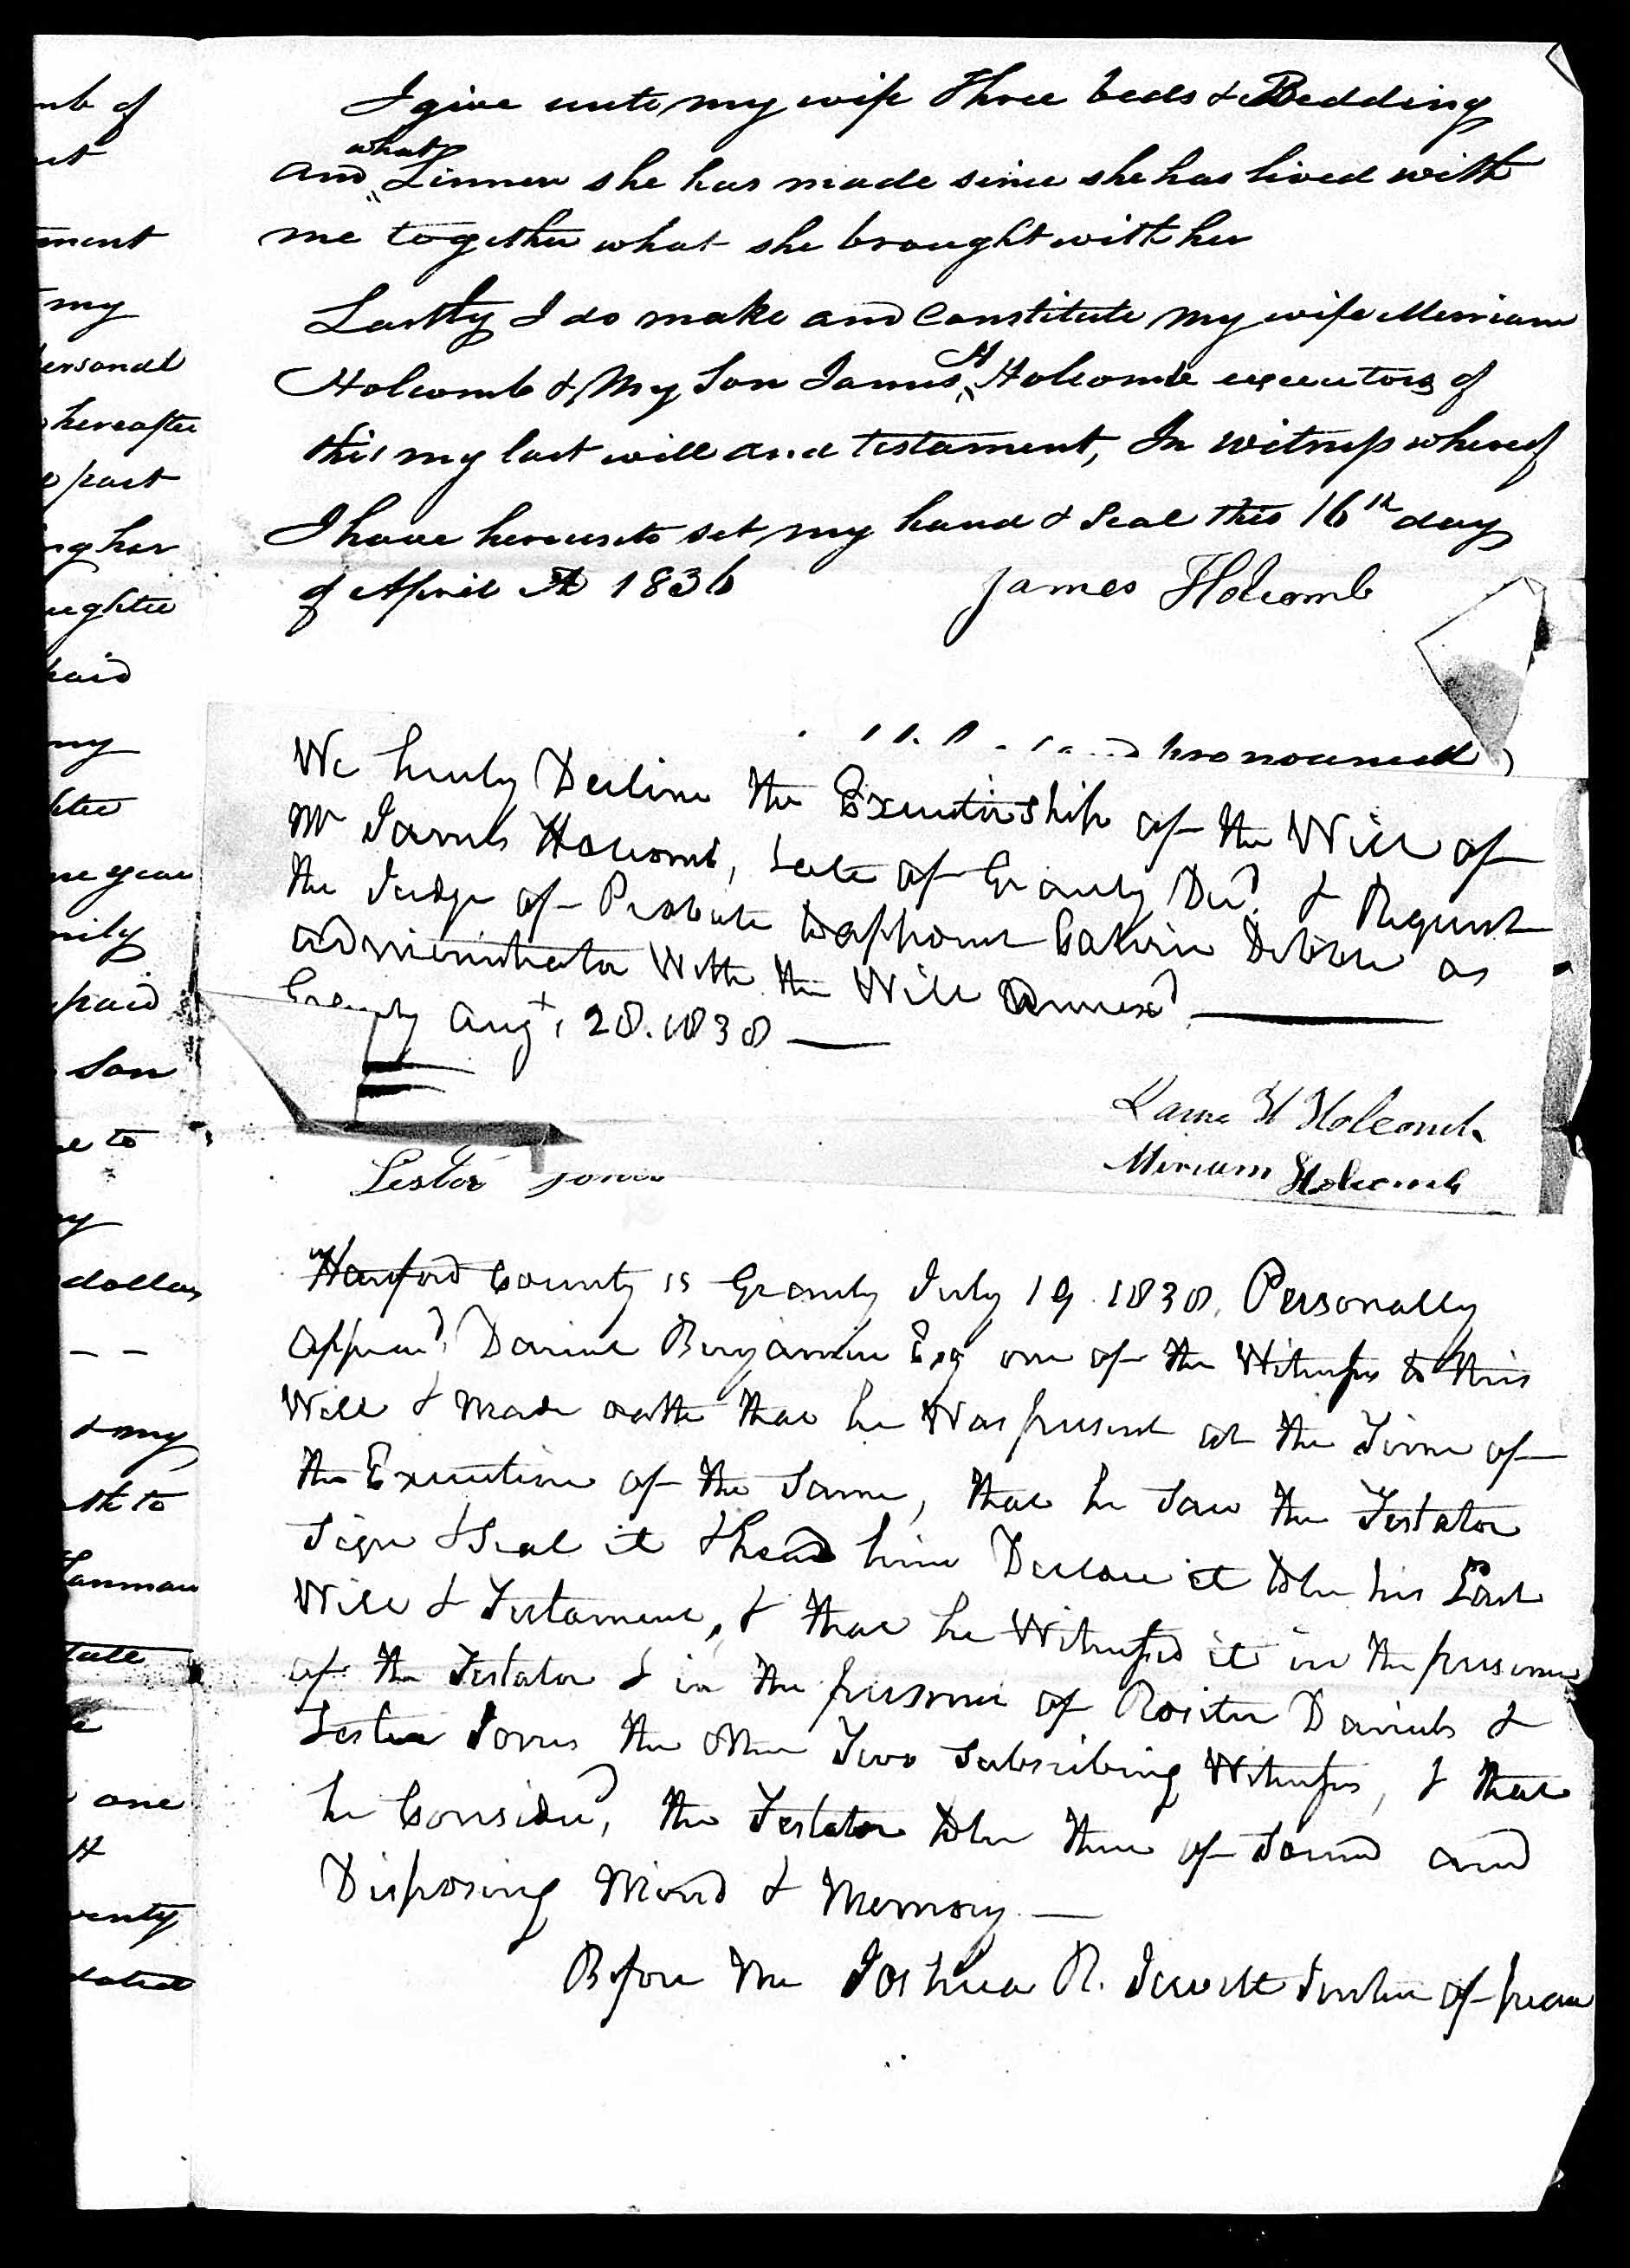 I give unto my wife Three beds & Bedding
and what Linnen she has made since she has lived with
me together what she brought with her
Lastly I do make and Constitute my wife Merriam
Holcomb & My Son James H Holcomb executors of
this my last will and testament, In witness whereof
I have hereunto set my hand & Seal this 16th day
of April AD 1836 James Holcomb
pronounced
We hereby Decline the Executorship of the Will of
Mr James Holcomb, Late of Granby Decd. & Request
the Judge of Probate to appoint Calvin as
administrator With the Will Annexd
Granby Augt, 28. 1838
James H Holcomb
Miriam Holcomb
Lester Jones
Harford County ss Granby July 19 1838. Personally
appeard, Daniel Benjamin Esq one of the Witnesses to this
Will & Made oath that he Was present at the Time of
the Execution of the Same, that he Saw the Testator
Sign & Seal it & heard him Declare it to be his Last
Will & Testament, & that he Witnessed it in the presence
of the Testator & in the presence of Roister Daniels &
Lester Jones the other Two Subscribing Witnesses, & that
he Considerd, the Testator to be then of Sound and
Disposing Mind & Memory
Before Me Joshua R. Jewett Justice of peace
mb of
ment
my
personal
hereafter
part
ng her
ughter
paid
my
hter
ne year
mily
paid
Son
e to
y
dollars
& my
th to
tate
one
H
venty